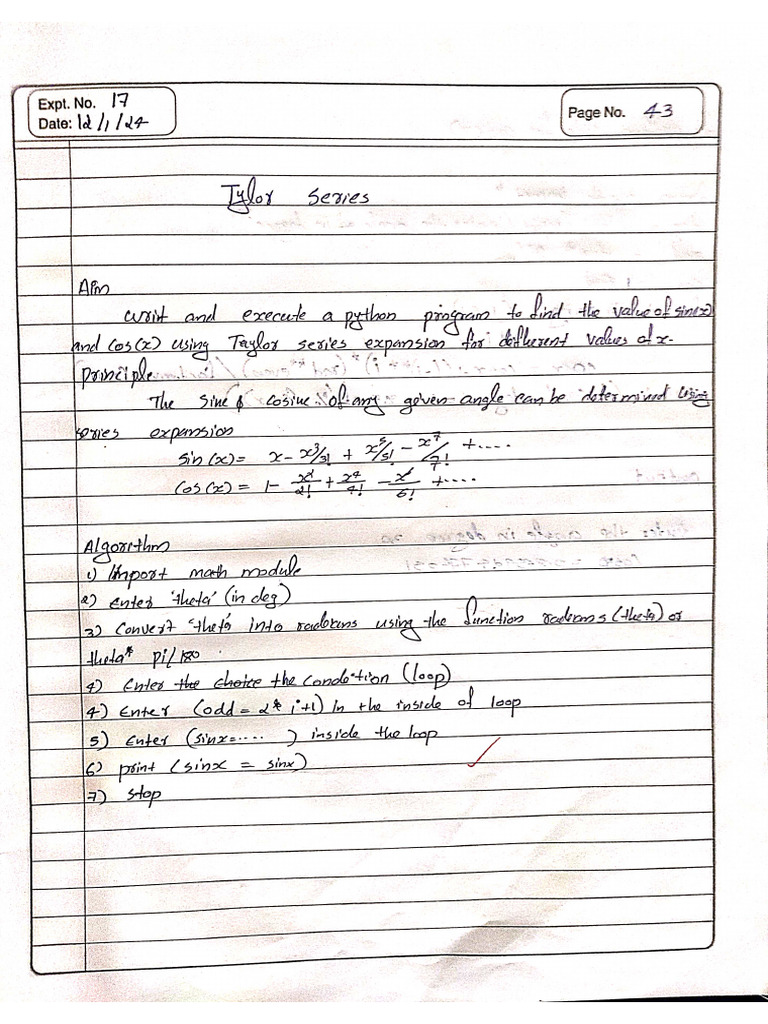 Expt. No. 17
Date: 12/1/24
Page No. 43
Tylor series
Aim
write and execute a python program to find the value of sin(x)
and cos(x) using Taylor series expansion for different values of x.
Principle
The sine & cosine of any given angle can be determined using
series expansion
sin(x) = x - x³/3! + x⁵/5! - x⁷/7! + ....
cos(x) = 1 - x²/2! + x⁴/4! - x⁶/6! + ....
Algorithm
1) Import math module
2) enter 'theta' (in deg)
3) Convert 'theta' into radians using the function radians (theta) or
theta* pi/180
4) Enter the choice the condition (loop)
4) Enter (odd = 2* i+1) in the inside of loop
5) Enter (sinx=.... ) inside the loop
6) print (sinx = sinx)
7) stop